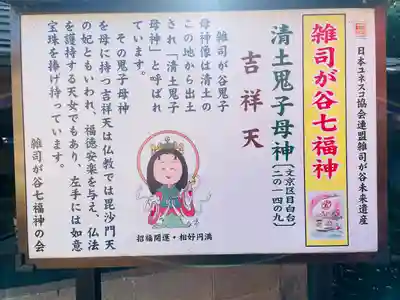 日本ユネスコ協会連盟雑司が谷未来遺産
雑司が谷七福神
清土鬼子母神
(文京区目白台
二の一四の九)
吉祥天
雑司が谷鬼子
母神像は清土の
この地から出土
され「清土鬼子
母神」と呼ばれ
ています。
その鬼子母神
を母に持つ吉祥天は仏教では毘沙門天
の妃ともいわれ、福徳安楽を与え、仏法
を護持する天女でもあり、左手には如意
宝珠を捧げ持っています。
雑司が谷七福神の会
招福開運・相好円満